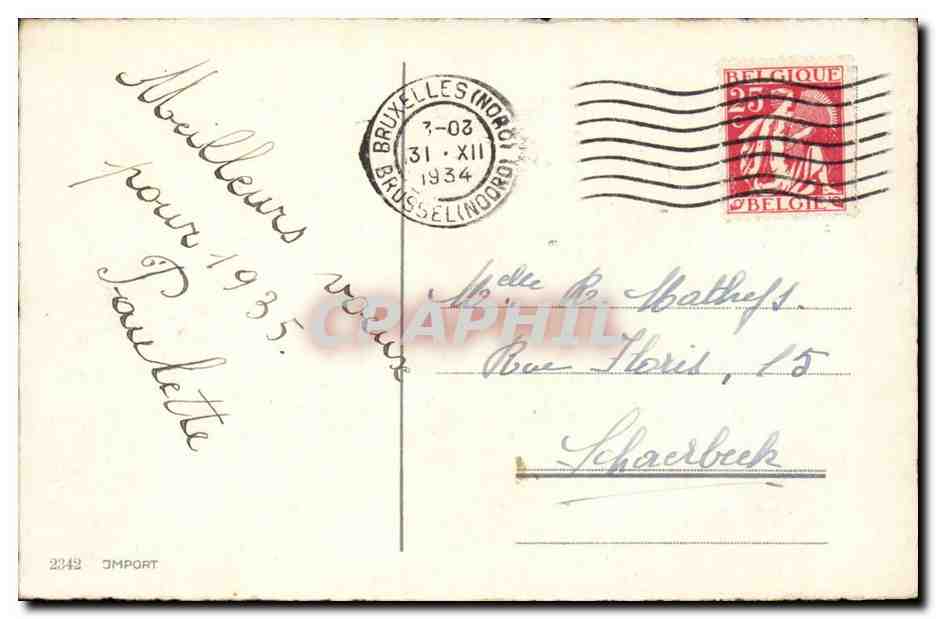 Meilleurs vœux
pour 1935.
Paulette
BRUXELLES (NORD)
3-03
31 · XII
1934
BRUSSEL (NOORD)
BELGIQUE
25
c
BELGIË
Melle R. Mathys.
Rue Floris, 15
Schaerbeek
CPAPHIL
2342 IMPORT